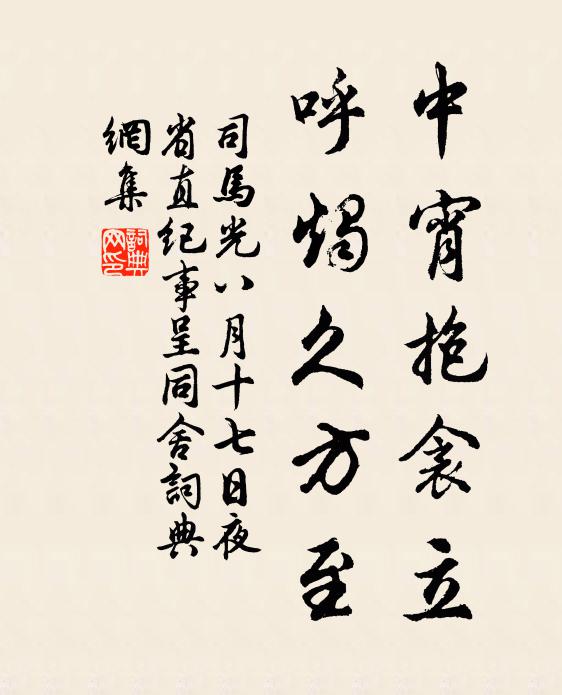 中宵抱衾立
呼燭久方至
司馬光八月十七日夜
省直紀事呈同舍詞典
網集
詞典
网印